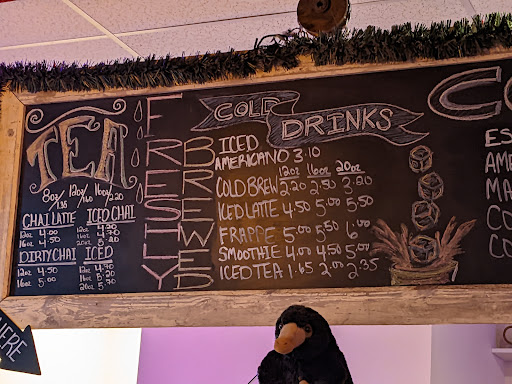 TEA
8oz/1.35 12oz/1.60 16oz/2.20
CHAI LATTE
12oz 4.00
16oz 4.50
ICED CHAI
12oz 4.20
16oz 4.70
20oz 5.20
DIRTY CHAI
12oz 4.50
16oz 5.00
ICED
12oz 4.70
16oz 5.20
20oz 5.70
FRESHLY
BREWED
COLD DRINKS
ICED
AMERICANO 3.10
12oz 16oz 20oz
COLD BREW 2.20 2.50 3.20
ICED LATTE 4.50 5.00 5.50
FRAPPE 5.00 5.50 6.00
SMOOTHIE 4.00 4.50 5.00
ICED TEA 1.65 2.00 2.35
CO
ES
AME
MA
CO
CO
HERE